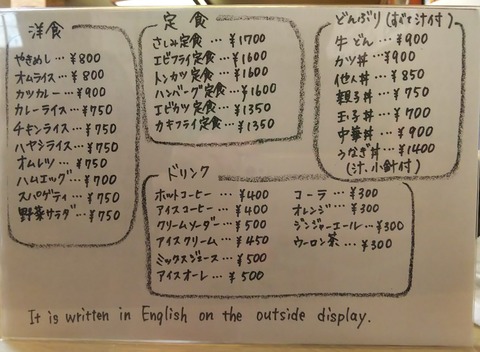 洋食
やきめし…¥800
オムライス…¥800
カツカレー…¥900
カレーライス…¥750
チキンライス…¥750
ハヤシライス…¥750
オムレツ…¥750
ハムエッグ…¥700
スパゲティ…¥750
野菜サラダ…¥750
定食
さしみ定食…¥1700
エビフライ定食…¥1600
トンカツ定食…¥1600
ハンバーグ定食…¥1600
エビカツ定食…¥1350
カキフライ定食…¥1350
どんぶり(すべて汁付)
牛どん…¥900
カツ丼…¥900
他人丼…¥850
親子丼…¥750
玉子丼…¥700
中華丼…¥900
うなぎ丼…¥1400
(汁、小鉢付)
ドリンク
ホットコーヒー…¥400
アイスコーヒー…¥400
クリームソーダー…¥500
アイスクリーム…¥450
ミックスジュース…¥500
アイスオーレ…¥500
コーラ…¥300
オレンジ…¥300
ジンジャーエール…¥300
ウーロン茶…¥300
It is written in English on the outside display.